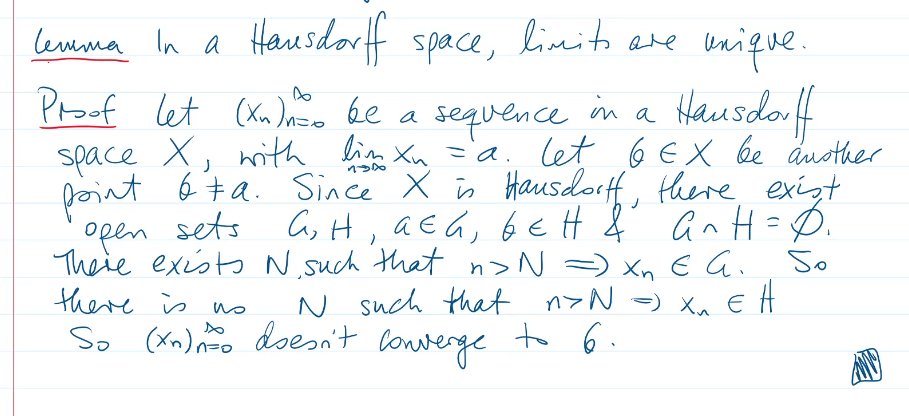 Lemma In a Hausdorff space, limits are unique.
Proof Let (xₙ)ₙ₌₀^∞ be a sequence in a Hausdorff
space X, with lim n→∞ xₙ = a. Let b ∈ X be another
point b ≠ a. Since X is Hausdorff, there exist
open sets G, H, a ∈ G, b ∈ H & G ∩ H = ∅.
There exists N, such that n > N ⇒ xₙ ∈ G. So
there is no N such that n > N ⇒ xₙ ∈ H
So (xₙ)ₙ₌₀^∞ doesn't converge to b.